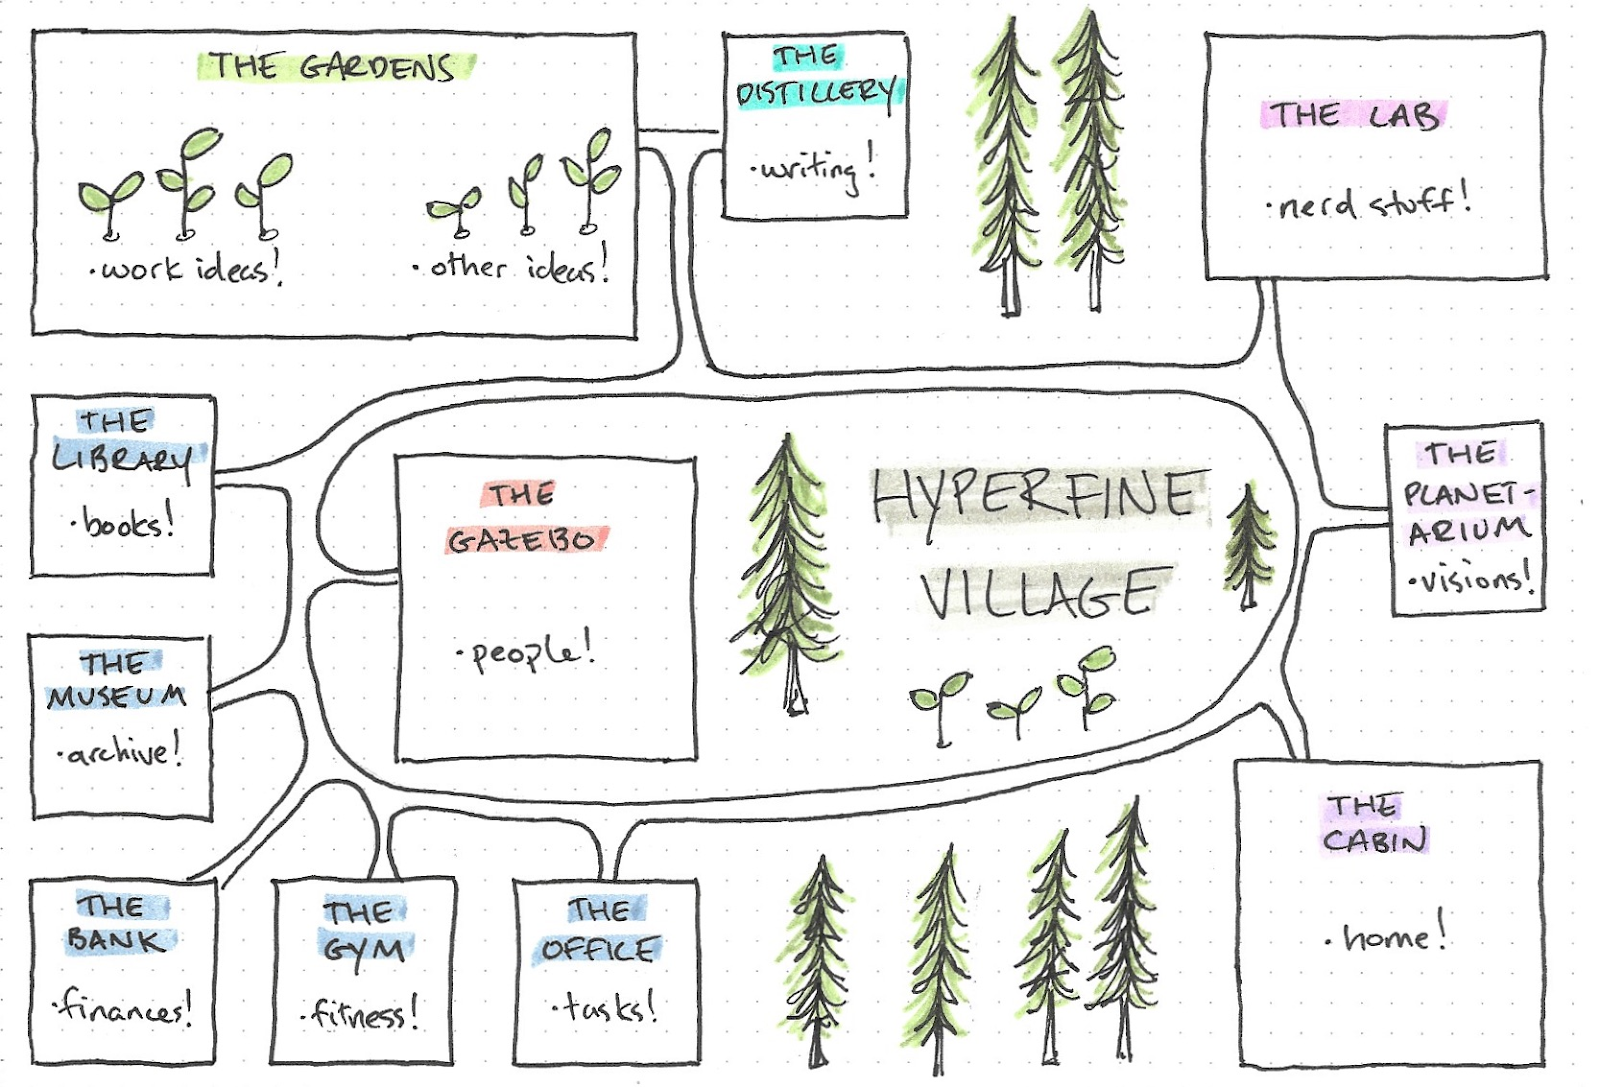 THE GARDENS
·work ideas!
·other ideas!
THE
DISTILLERY
·writing!
THE LAB
·nerd stuff!
THE
LIBRARY
·books!
THE
GAZEBO
·people!
HYPERFINE
VILLAGE
THE
PLANET-
ARIUM
·visions!
THE
MUSEUM
·archive!
THE
BANK
·finances!
THE
GYM
·fitness!
THE
OFFICE
·tasks!
THE
CABIN
·home!